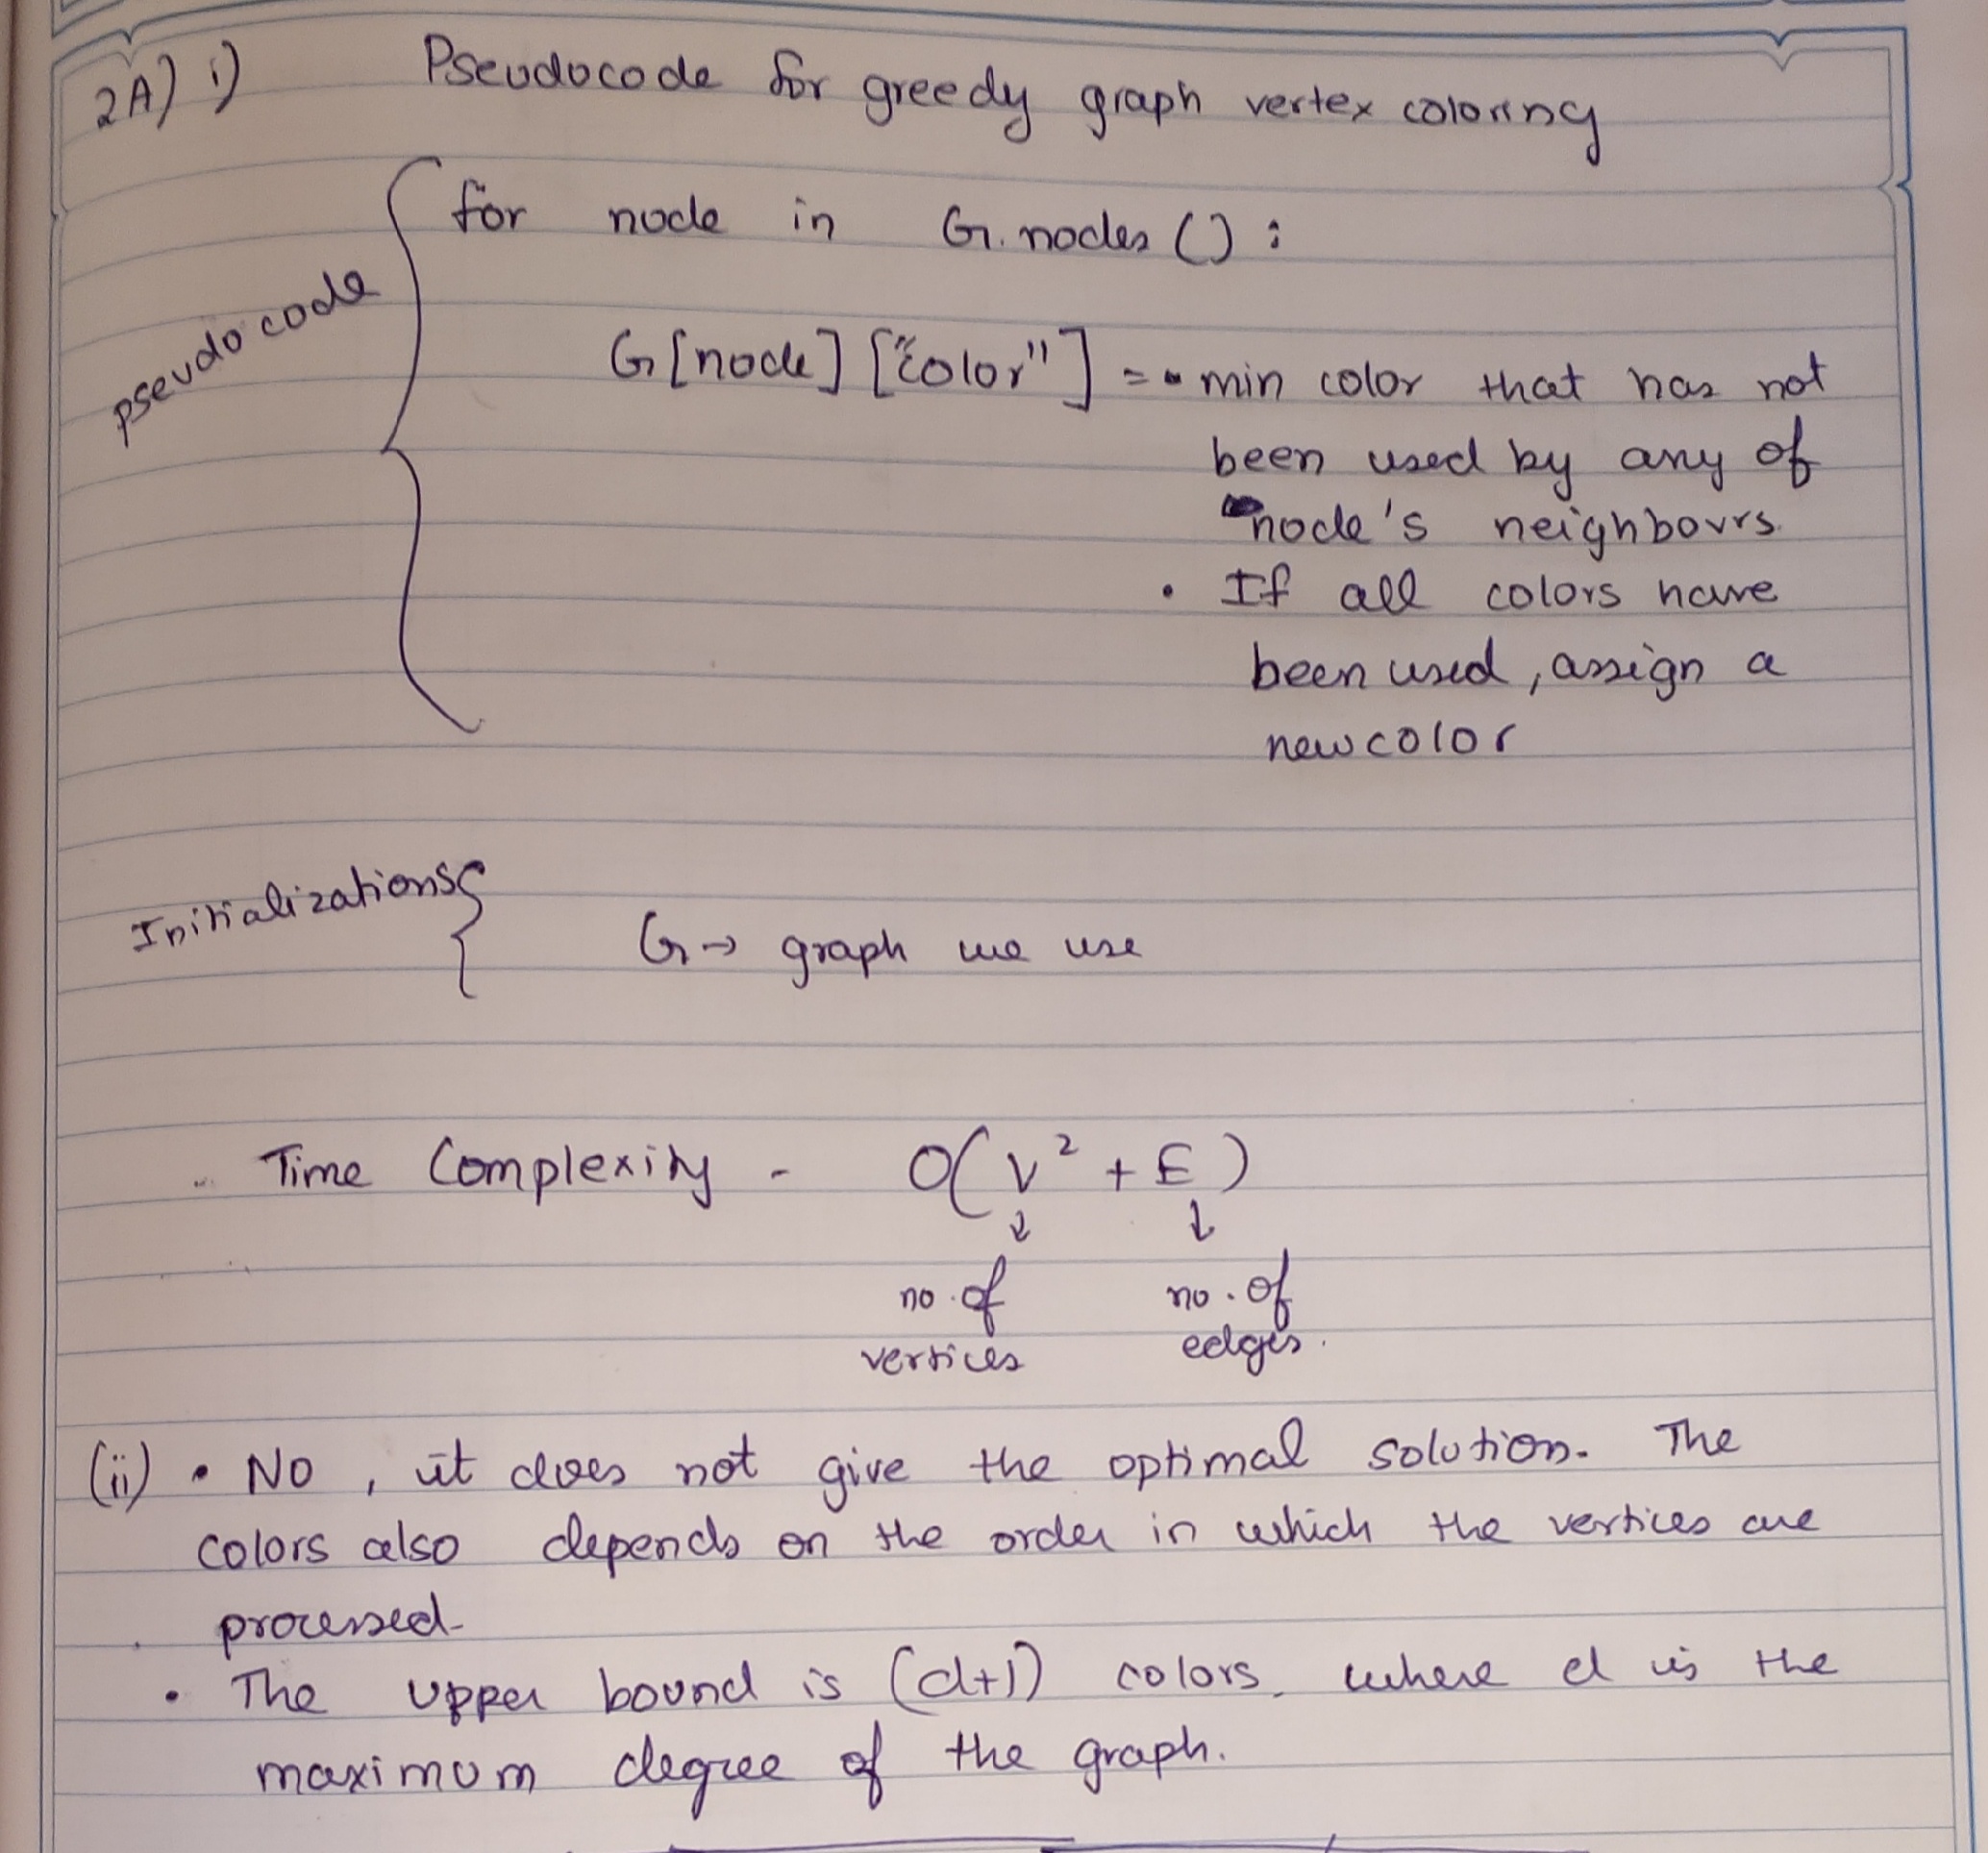 2A) i) Pseudocode for greedy graph vertex coloring
for node in G.nodes():
pseudocode
G[node]["color"] = • min color that has not
been used by any of
node's neighbours.
• If all colors have
been used, assign a
new color
Initializations
G → graph we use
Time Complexity - O(V² + E)
↓ ↓
no. of no. of
vertices edges.
(ii) • No, it does not give the optimal solution. The
colors also depends on the order in which the vertices are
processed.
• The upper bound is (d+1) colors, where d is the
maximum degree of the graph.